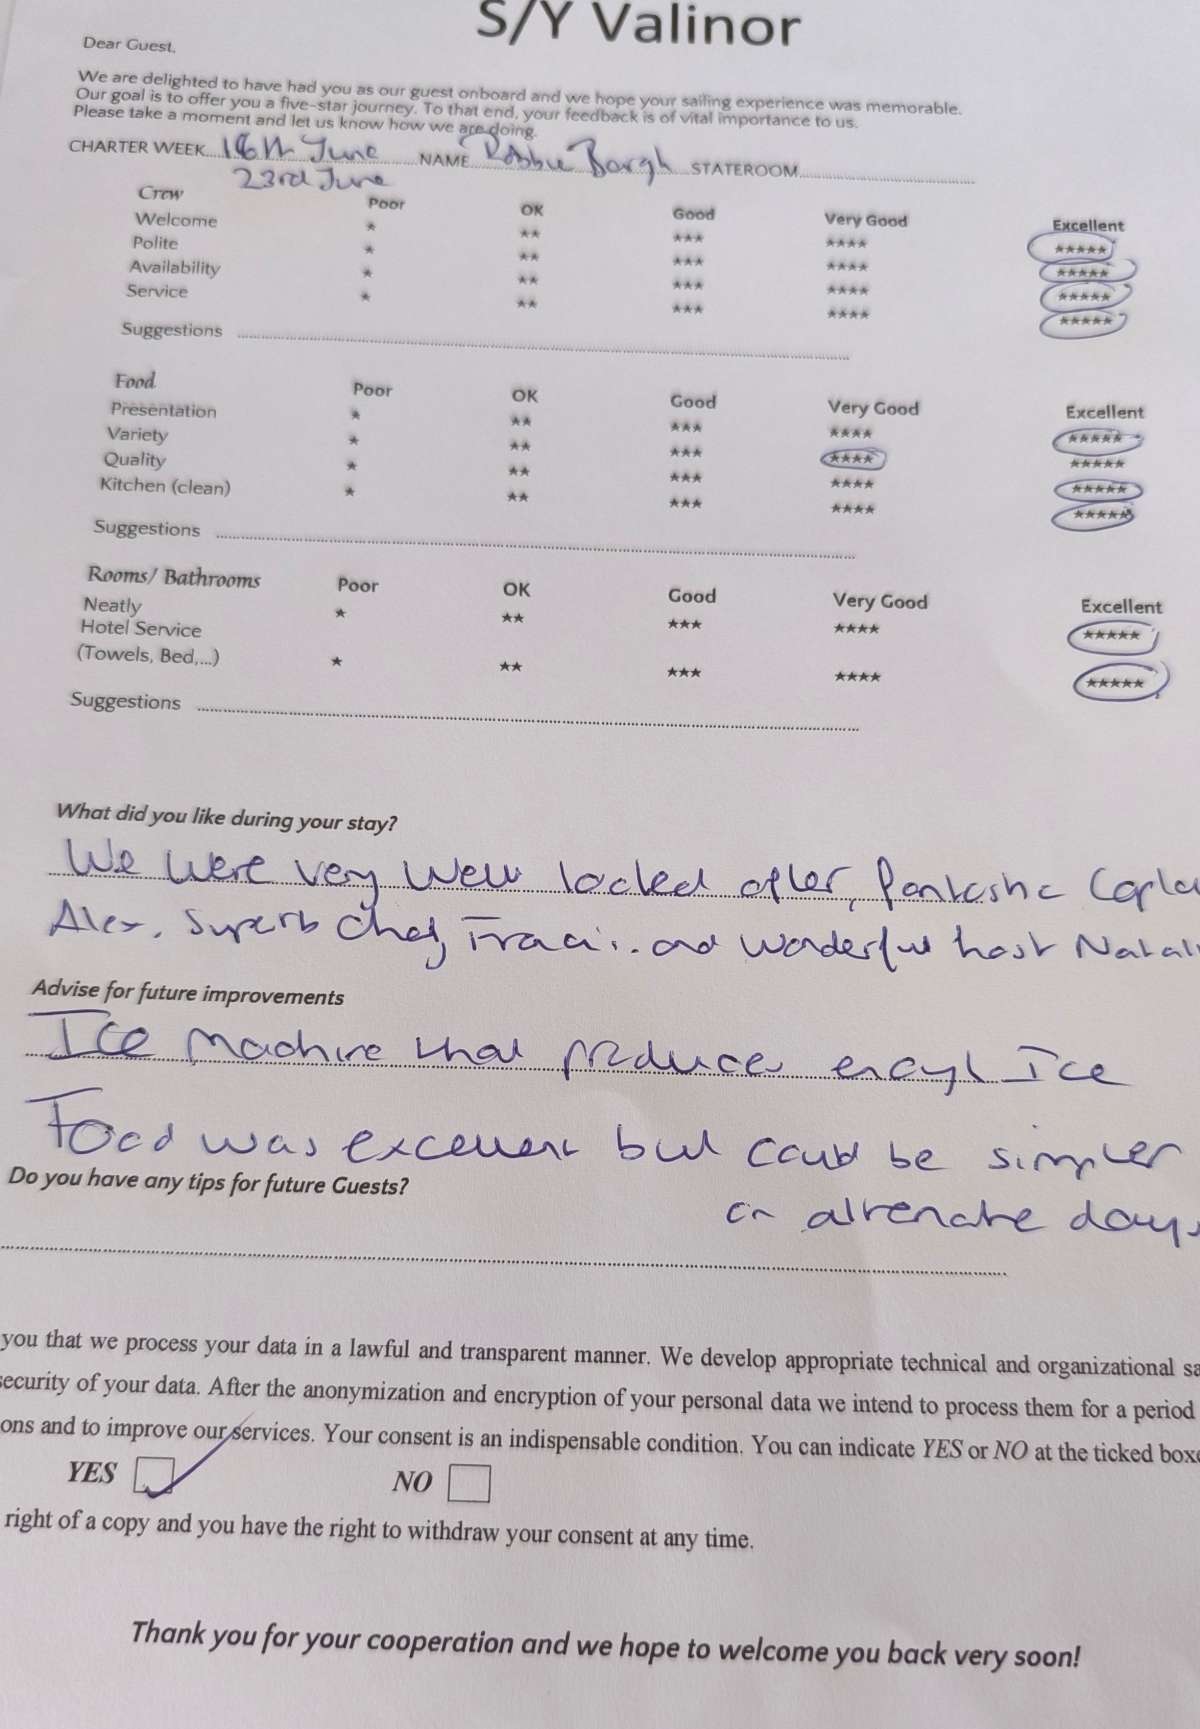 S/Y Valinor
Dear Guest,
We are delighted to have had you as our guest onboard and we hope your sailing experience was memorable.
Our goal is to offer you a five-star journey. To that end, your feedback is of vital importance to us.
Please take a moment and let us know how we are doing.
CHARTER WEEK 16th June NAME Robbie Bargh STATEROOM
23rd June
Crew Poor OK Good Very Good Excellent
Welcome * ** *** **** *****
Polite * ** *** **** *****
Availability * ** *** **** *****
Service * ** *** **** *****
Suggestions
Food Poor OK Good Very Good Excellent
Presentation * ** *** **** *****
Variety * ** *** **** *****
Quality * ** *** **** *****
Kitchen (clean) * ** *** **** *****
Suggestions
Rooms/ Bathrooms Poor OK Good Very Good Excellent
Neatly * ** *** **** *****
Hotel Service
(Towels, Bed,...) * ** *** **** *****
Suggestions
What did you like during your stay?
We were very well looked after, fantastic Capta
Alex, Superb Chef, and wonderful host Natali
Advise for future improvements
Ice machine that produces Ice
Food was excellent but could be simpler
Do you have any tips for future Guests?
on alternate days
you that we process your data in a lawful and transparent manner. We develop appropriate technical and organizational sa
security of your data. After the anonymization and encryption of your personal data we intend to process them for a period
ons and to improve our services. Your consent is an indispensable condition. You can indicate YES or NO at the ticked boxe
YES NO
right of a copy and you have the right to withdraw your consent at any time.
Thank you for your cooperation and we hope to welcome you back very soon!